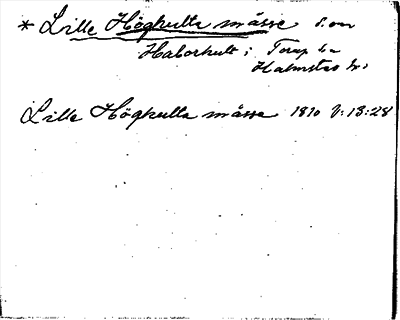 * Lille Högkulta måsse s. om
Haborhult i Torup sn
Halmstad hd
Lille Högkulta måsse 1810 V:13:28